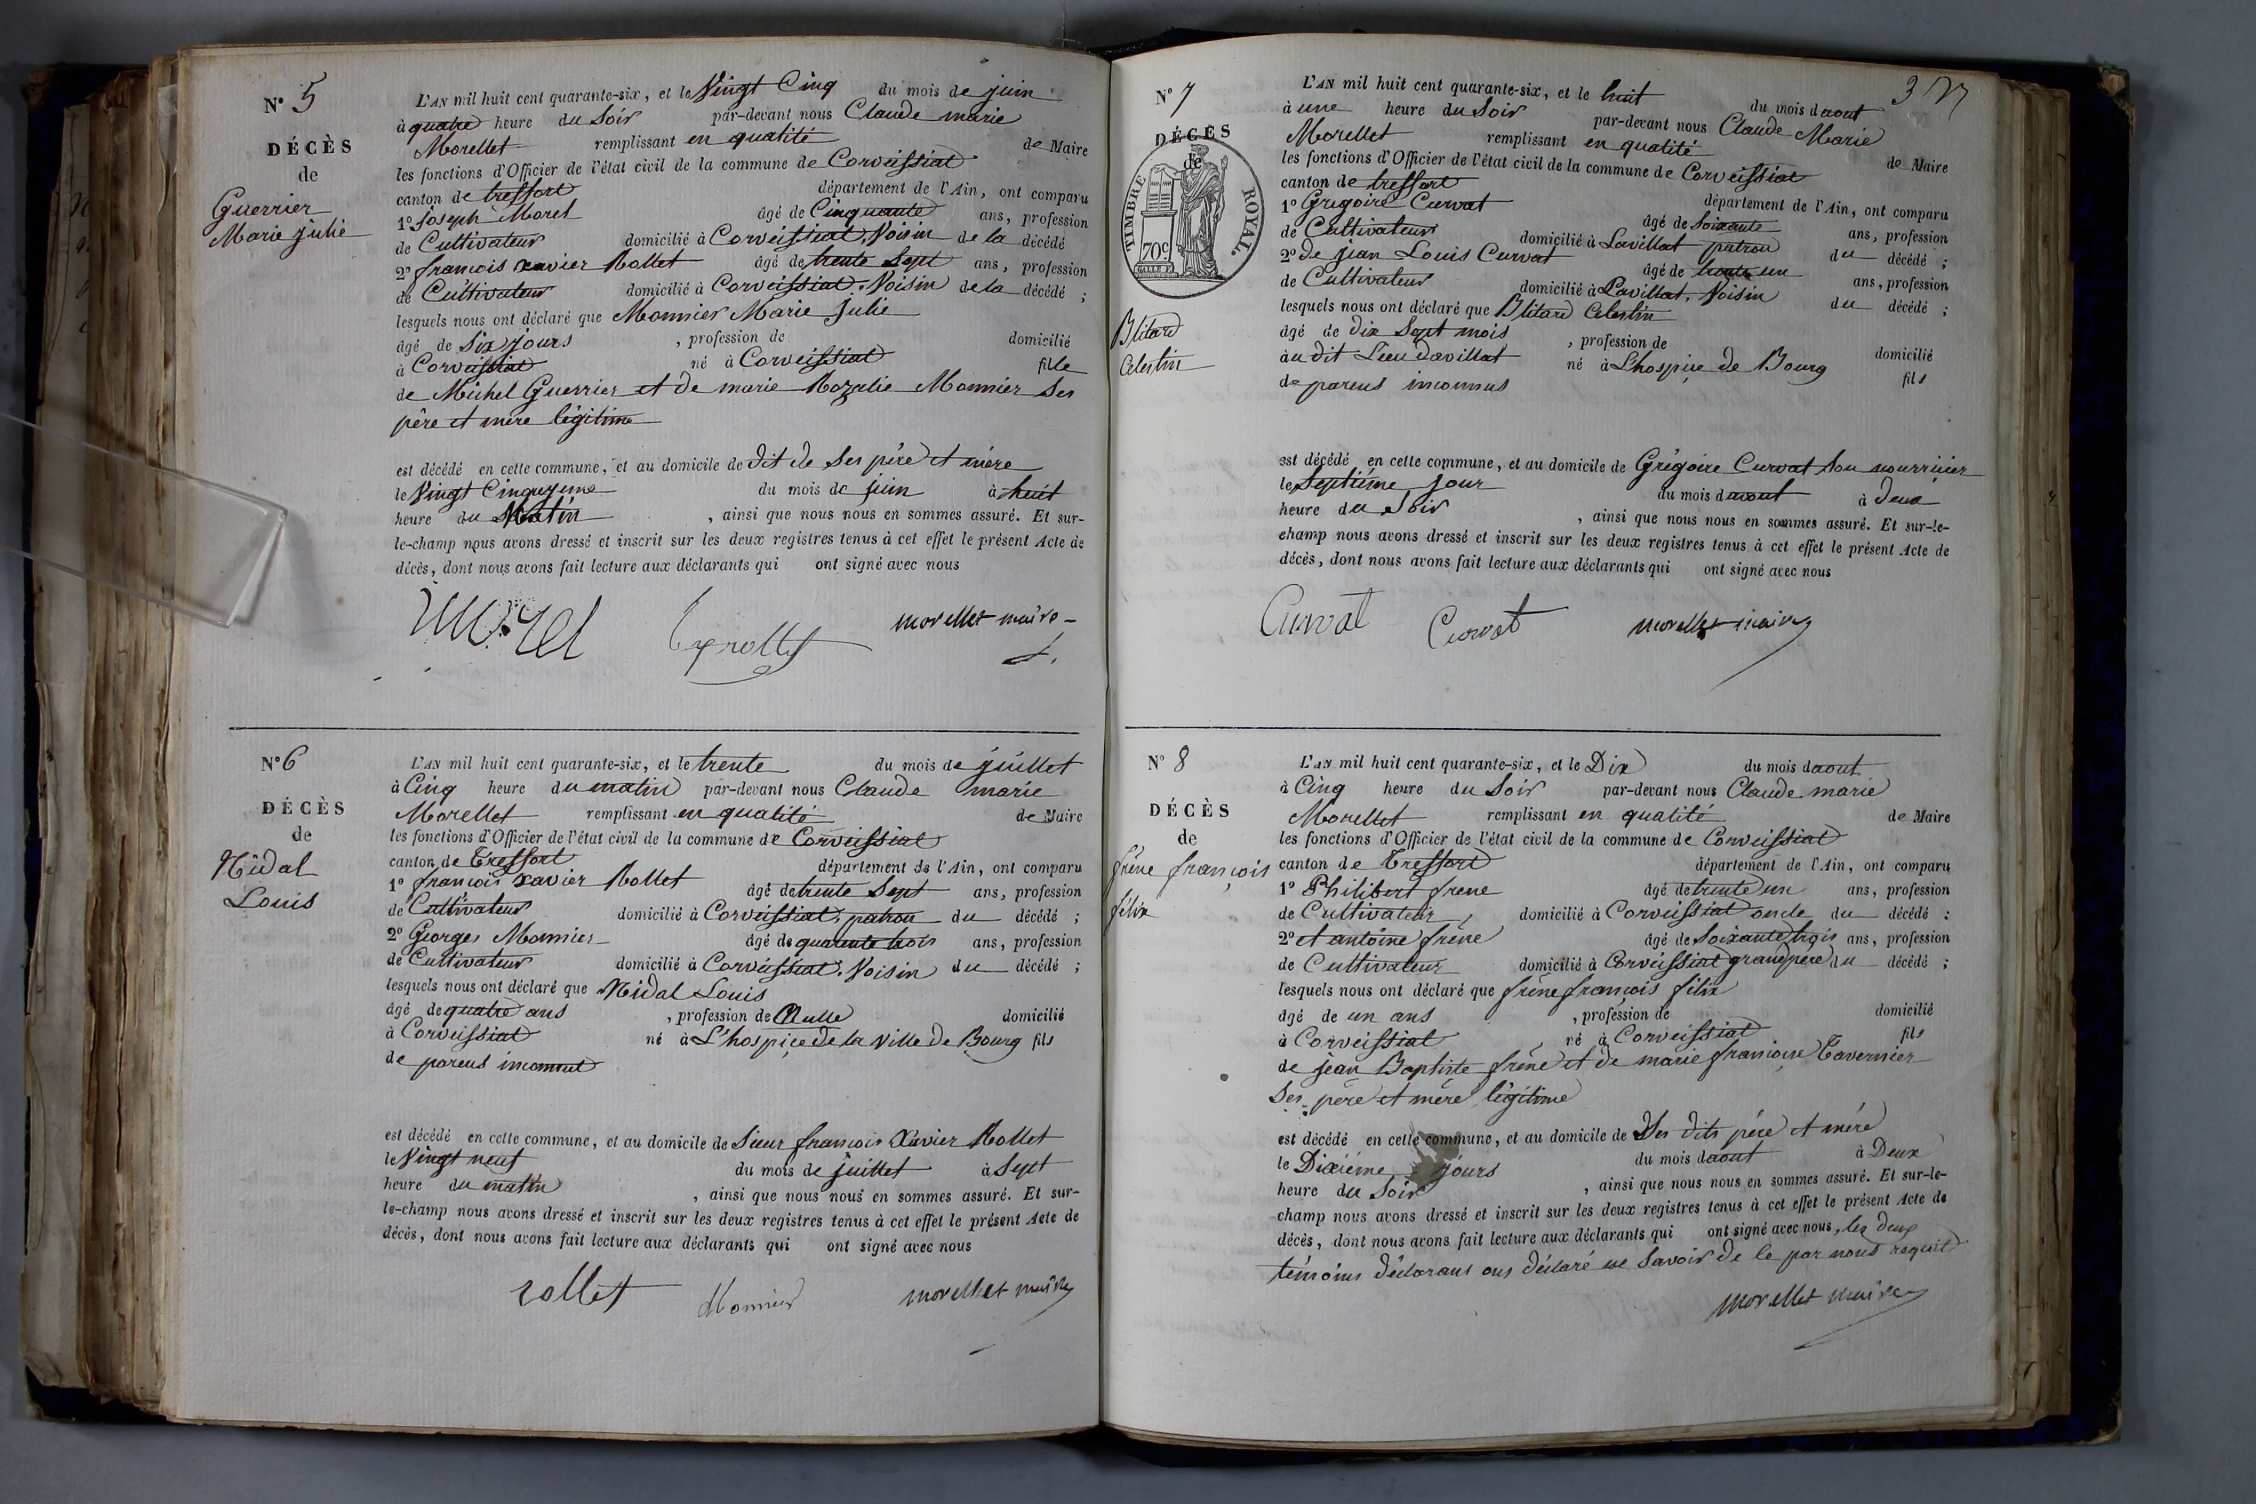 N° 5
DÉCÈS
de
Guerrier
Marie julie
L'AN mil huit cent quarante-six, et le Vingt Cinq du mois de juin
à quatre heure du Soir par-devant nous Claude marie
Morellet remplissant en qualité de Maire
les fonctions d'Officier de l'état civil de la commune de Corveissiat
canton de treffort département de l'Ain, ont comparu
1° joseph Morel âgé de Cinquante ans, profession
de Cultivateur domicilié à Corveissiat, Voisin de la décédé
2° francois xavier Rollet âgé de trente Sept ans, profession
de Cultivateur domicilié à Corveissiat, Voisin de la décédé ;
lesquels nous ont déclaré que Monnier Marie julie
âgé de Six jours , profession de domicilié
à Corveissiat né à Corveissiat fille
de Michel Guerrier et de marie Rozalie Monnier Ses
père et mère légitime
est décédé en cette commune, et au domicile de dit de Ses père et mère
le Vingt Cinquieme du mois de juin à huit
heure du Matin , ainsi que nous nous en sommes assuré. Et sur-
le-champ nous avons dressé et inscrit sur les deux registres tenus à cet effet le présent Acte de
décès, dont nous avons fait lecture aux déclarants qui ont signé avec nous
Morel morellet maire
N° 6
DÉCÈS
de
Nidal
Louis
L'AN mil huit cent quarante-six, et le trente du mois de juillet
à Cinq heure du matin par-devant nous Claude marie
Morellet remplissant en qualité de Maire
les fonctions d'Officier de l'état civil de la commune de Corveissiat
canton de Treffort département de l'Ain, ont comparu
1° francois xavier Rollet âgé de trente Sept ans, profession
de Cultivateur domicilié à Corveissiat, patron du décédé ;
2° Georges Monnier âgé de quarante trois ans, profession
de Cultivateur domicilié à Corveissiat, Voisin du décédé ;
lesquels nous ont déclaré que Nidal Louis
âgé de quatre ans , profession de Nulle domicilié
à Corveissiat né à L'hospice de la Ville de Bourg fils
de parens inconnut
est décédé en cette commune, et au domicile de Sieur francois Xavier Rollet
le Vingt neuf du mois de juillet à Sept
heure du matin , ainsi que nous nous en sommes assuré. Et sur-
le-champ nous avons dressé et inscrit sur les deux registres tenus à cet effet le présent Acte de
décès, dont nous avons fait lecture aux déclarants qui ont signé avec nous
rollet Monnier morellet maire
N° 7
DÉCÈS
de
TIMBRE ROYAL.
70c
Blitard
Celestin
L'AN mil huit cent quarante-six, et le huit du mois d aout
à une heure du Soir par-devant nous Claude Marie
Morellet remplissant en qualité de Maire
les fonctions d'Officier de l'état civil de la commune de Corveissiat
canton de treffort département de l'Ain, ont comparu
1° Grégoire Curvat âgé de Soixante ans, profession
de Cultivateur domicilié à Lavillat patron du décédé ;
2° de jean Louis Curvat âgé de trente un ans, profession
de Cultivateur domicilié à Lavillat, Voisin du décédé ;
lesquels nous ont déclaré que Blitard Celestin
âgé de dix Sept mois , profession de domicilié
à au dit Lieu davillat né à L'hospice de Bourg fils
de parens inconnus
est décédé en cette commune, et au domicile de Grégoire Curvat Son nourricier
le Septième jour du mois d aout à deux
heure du Soir , ainsi que nous nous en sommes assuré. Et sur-le-
champ nous avons dressé et inscrit sur les deux registres tenus à cet effet le présent Acte de
décès, dont nous avons fait lecture aux déclarants qui ont signé avec nous
Curvat Curvat morellet maire
N° 8
DÉCÈS
de
frêne françois
félix
L'AN mil huit cent quarante-six, et le Dix du mois d aout
à Cinq heure du Soir par-devant nous Claude marie
Morellet remplissant en qualité de Maire
les fonctions d'Officier de l'état civil de la commune de Corveissiat
canton de Treffort département de l'Ain, ont comparu
1° Philibert frene âgé de trente un ans, profession
de Cultivateur, domicilié à Corveissiat oncle du décédé :
2° et antoine frêne âgé de Soixante trois ans, profession
de Cultivateur domicilié à Corveissiat grand père du décédé ;
lesquels nous ont déclaré que frêne françois félix
âgé de un ans , profession de domicilié
à Corveissiat né à Corveissiat fils
de jean Baptiste frêne et de marie françoise Tavernier
Ses père et mère légitime
est décédé en cette commune, et au domicile de Ses dits père et mère
le Dixième jours du mois d aout à Deux
heure du Soir , ainsi que nous nous en sommes assuré. Et sur-le-
champ nous avons dressé et inscrit sur les deux registres tenus à cet effet le présent Acte de
décès, dont nous avons fait lecture aux déclarants qui ont signé avec nous, les deux
témoins déclarans ons déclaré ne Savoir de le par nous requit
morellet maire